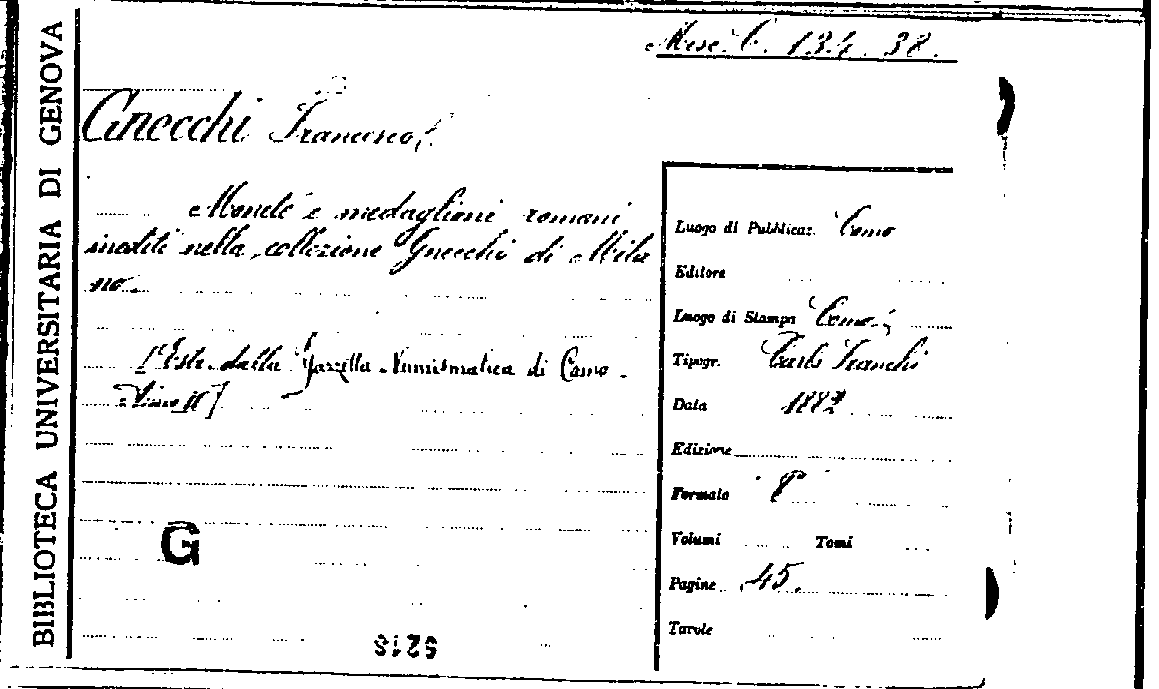 BIBLIOTECA UNIVERSITARIA DI GENOVA
Misc. C. 134. 38.
Gnecchi Francesco.
Monete e medaglioni romani
inediti nella collezione Gnecchi di Mila
no.
[Estr. dalla Gazzetta Numismatica di Como.
Anno II]
G
Luogo di Pubblicaz. Como
Editore
Luogo di Stampa Como
Tipogr. Carlo Franchi
Data 1882
Edizione
Formato 8°
Volumi Tomi
Pagine 45.
Tavole